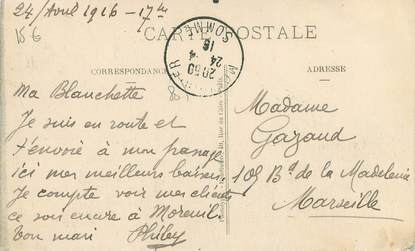 24/Avril 1916 - 17 hres
CARTE POSTALE
CORRESPONDANCE
ADRESSE
20 30
24 - 4
16
SOMME
Ma Blanchette
Je suis en route et
t'envoie à mon passage
ici mes meilleurs baisers
Je compte voir mes clients
ce soir encore à Moreuil.
Ton mari
Madame
Gazaud
109 Bd de la Madeleine
Marseille